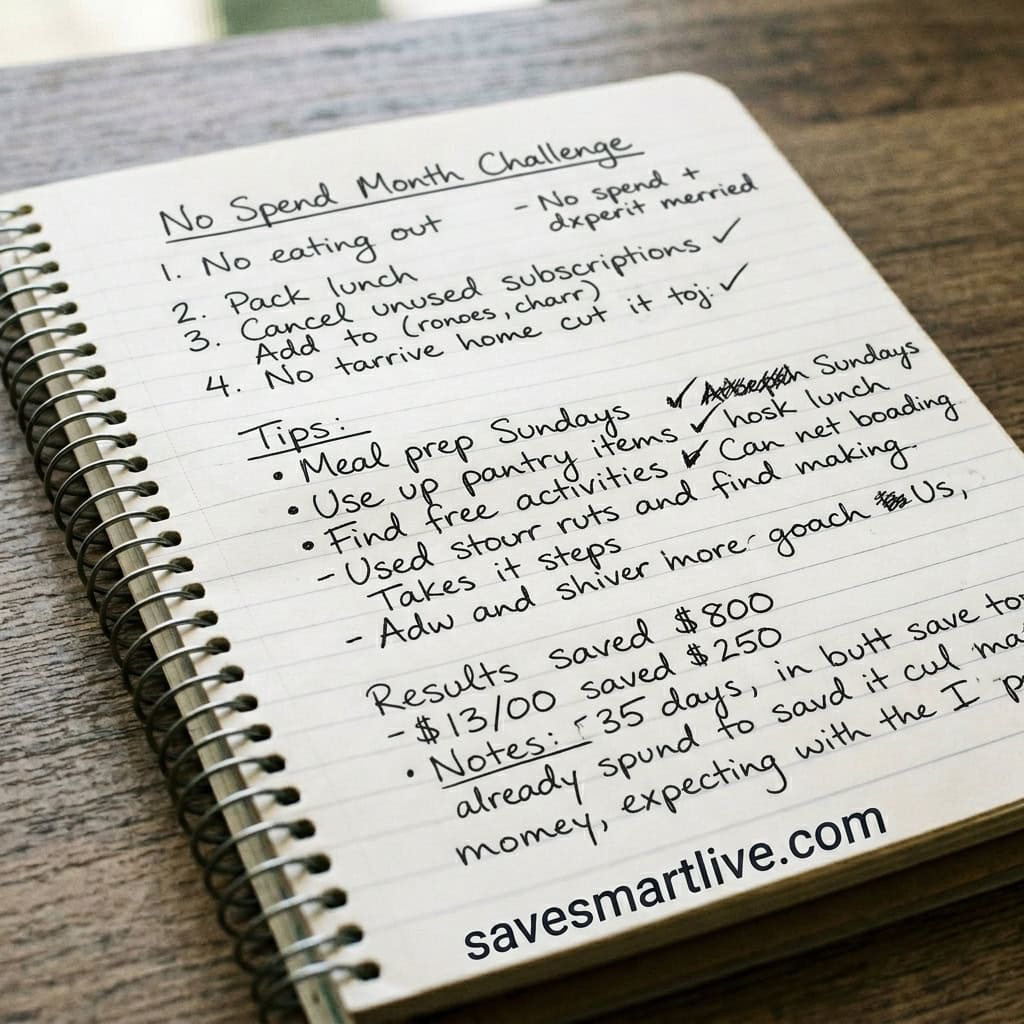 No Spend Month Challenge
- No spend +
dxperit merried
1. No eating out
2. Pack lunch
3. Cancel unused subscriptions ✓
Add to (ronoes, charr)
4. No tarrive home cut it toj: ✓
Tips:
• Meal prep Sundays ✓ Sundays
• Use up pantry items ✓ hosk lunch
• Find free activities ✓ Can net boading
- Used stourr ruts and find making.
Takes it steps
- Adw and shiver more goach Us,
Results saved $800
- $13/00 saved $250
• Notes: 35 days, in butt save
already spund to savd it cul
momey, expecting with the I
savesmartlive.com